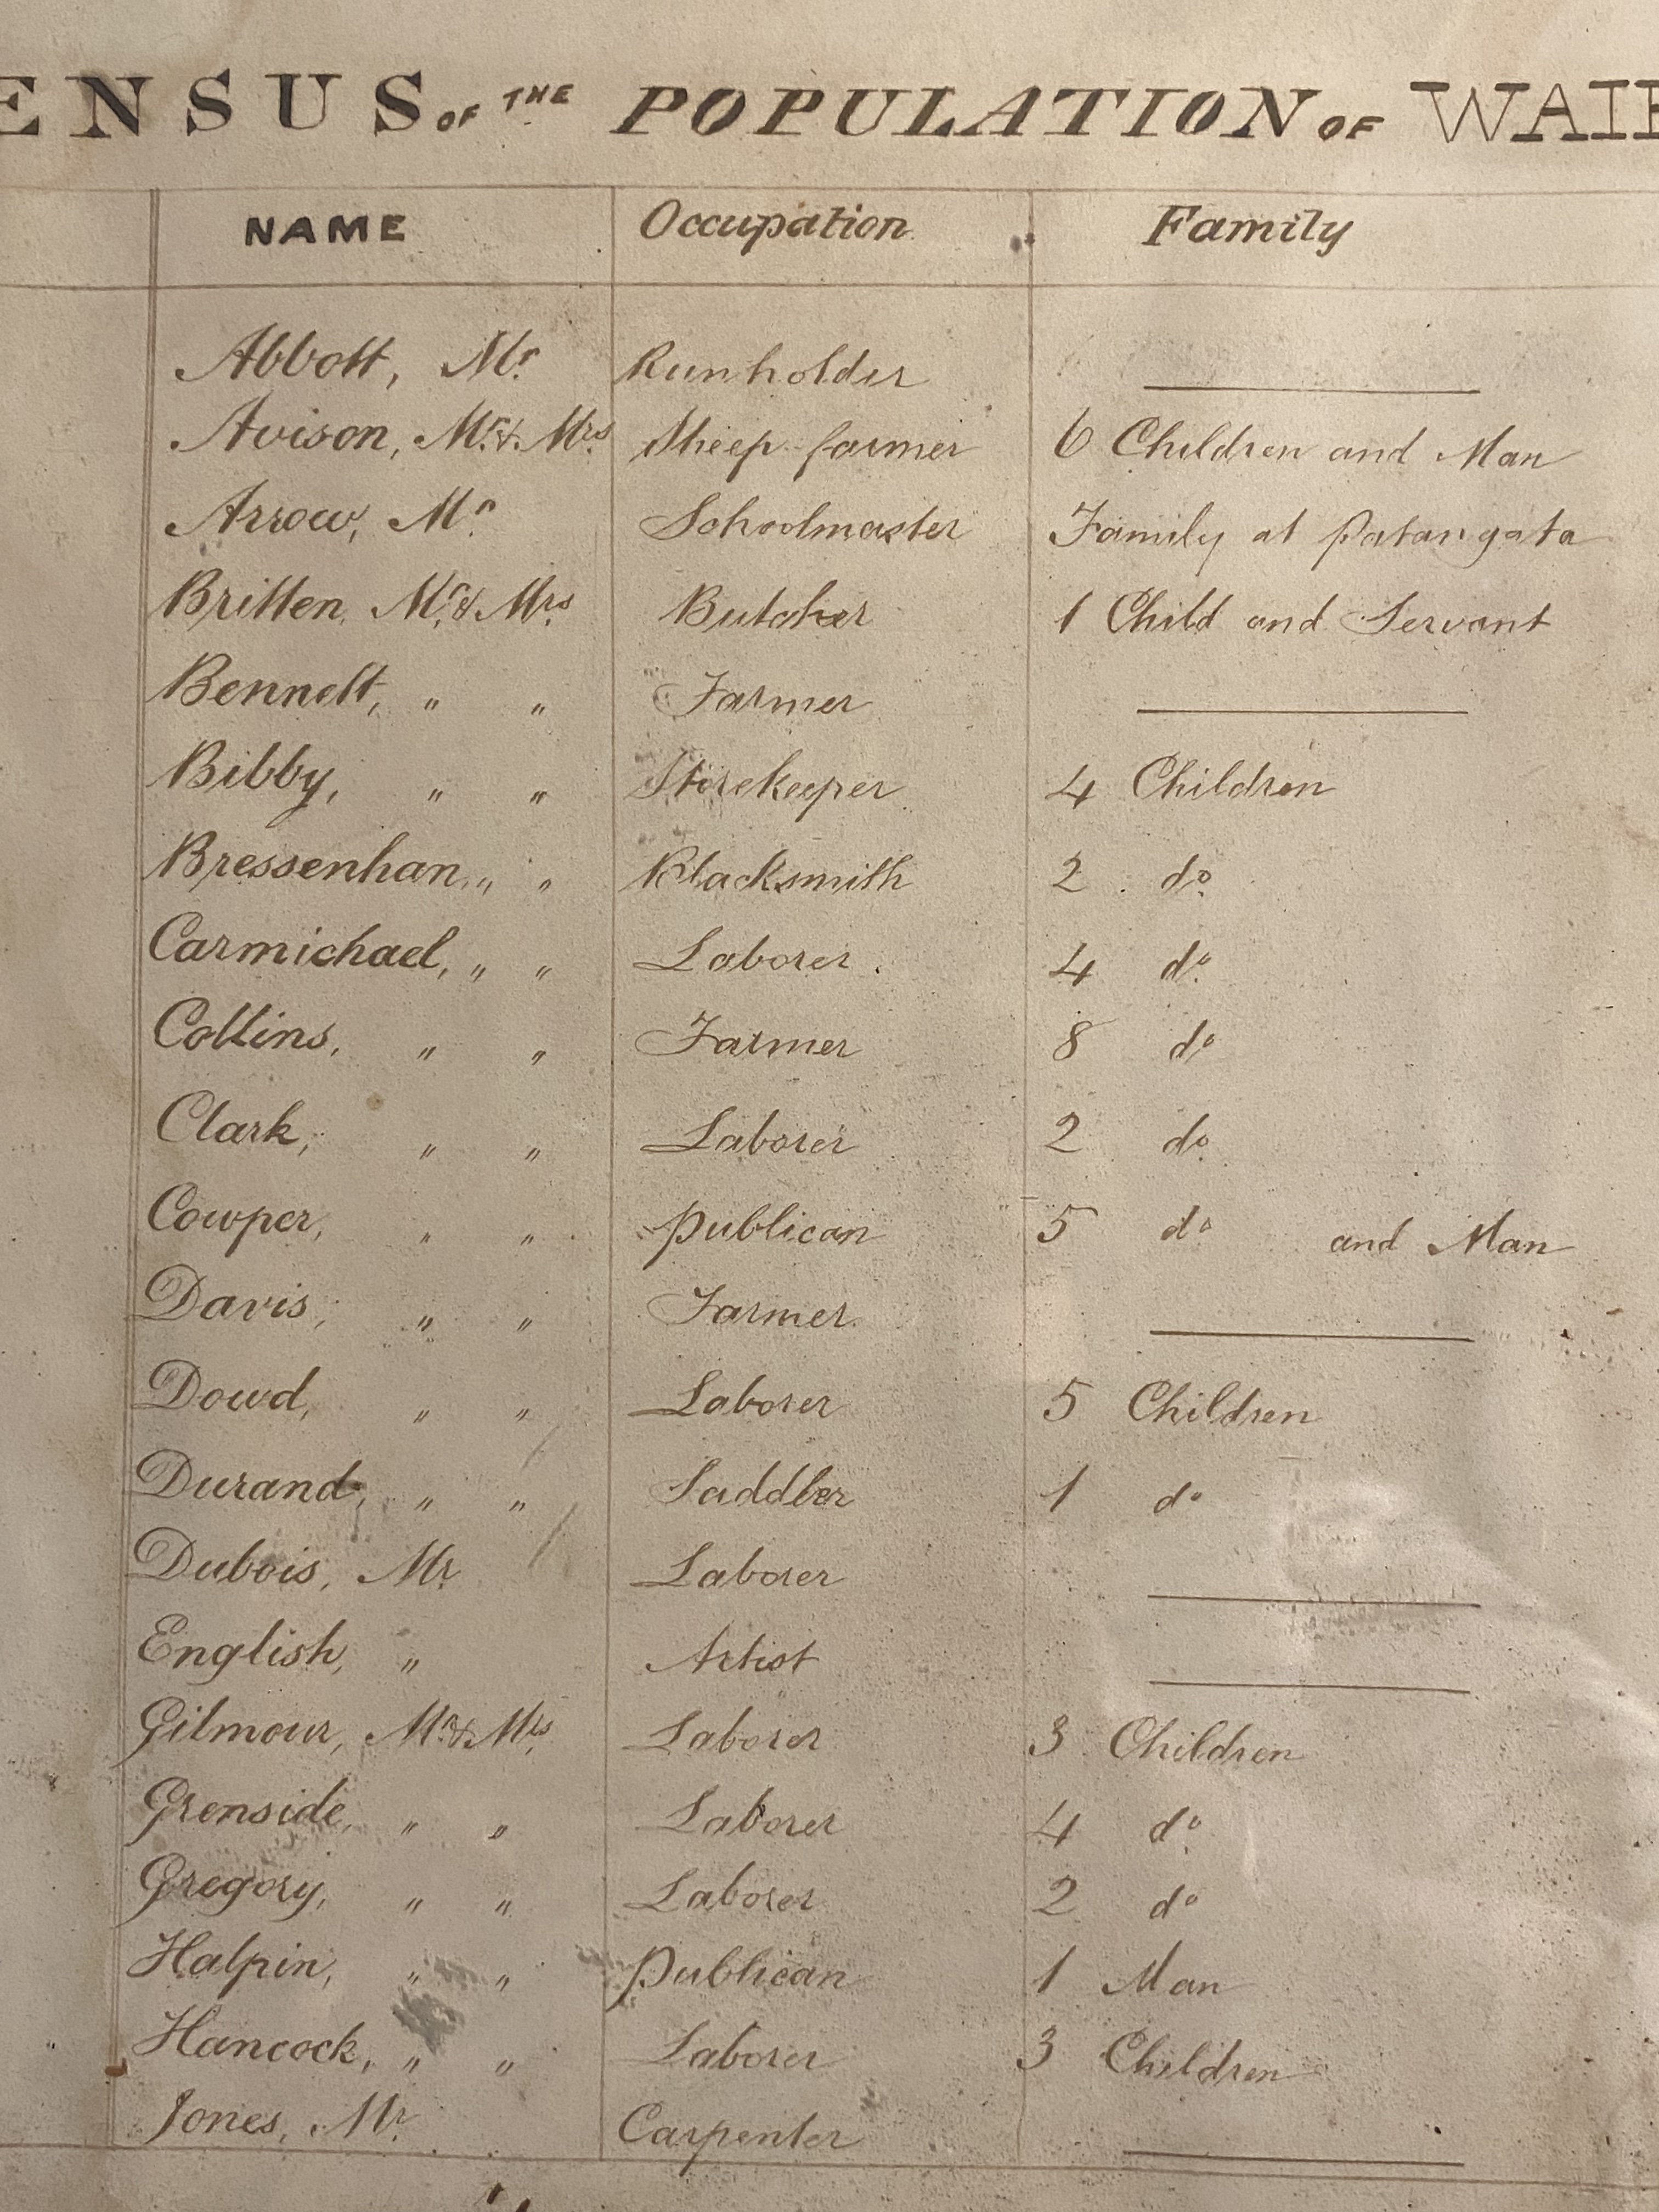 ENSUS OF THE POPULATION OF WAI
NAME Occupation Family
Abbott, Mr Runholder
Avison, Mr. & Mrs. Sheep-farmer 6 Children and Man
Arrow, Mr Schoolmaster Family at Patangata
Britten, Mr. & Mrs. Butcher 1 Child and Servant
Bennett, " " Farmer
Bibby, " " Storekeeper 4 Children
Bressenhan, " " Blacksmith 2 do
Carmichael, " " Laborer 4 do
Collins, " " Farmer 8 do
Clark, " " Laborer 2 do
Cowper, " " Publican 5 do and Man
Davis, " " Farmer
Dowd, " " Laborer 5 Children
Durand, " " Saddler 1 do
Dubois, Mr. Laborer
English, " Artist
Gilmour, Mr. & Mrs. Laborer 3 Children
Grenside, " " Laborer 4 do
Gregory, " " Laborer 2 do
Halpin, " " Publican 1 Man
Hancock, " " Laborer 3 Children
Jones, Mr. Carpenter